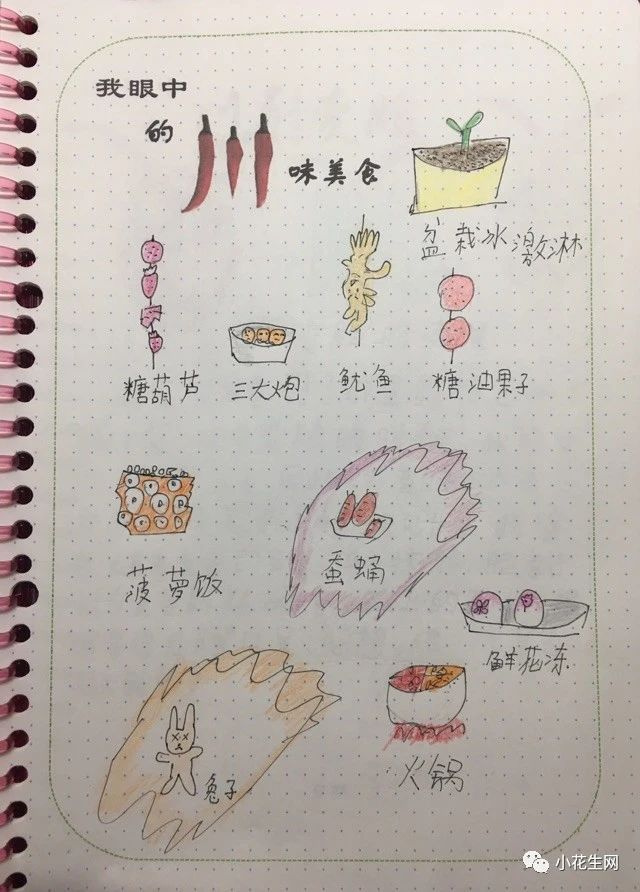 我眼中
的
味美食
盆栽冰激淋
糖葫芦
三大炮
鱿鱼
糖油果子
菠萝饭
蚕蛹
鲜花冻
兔子
火锅
小花生网